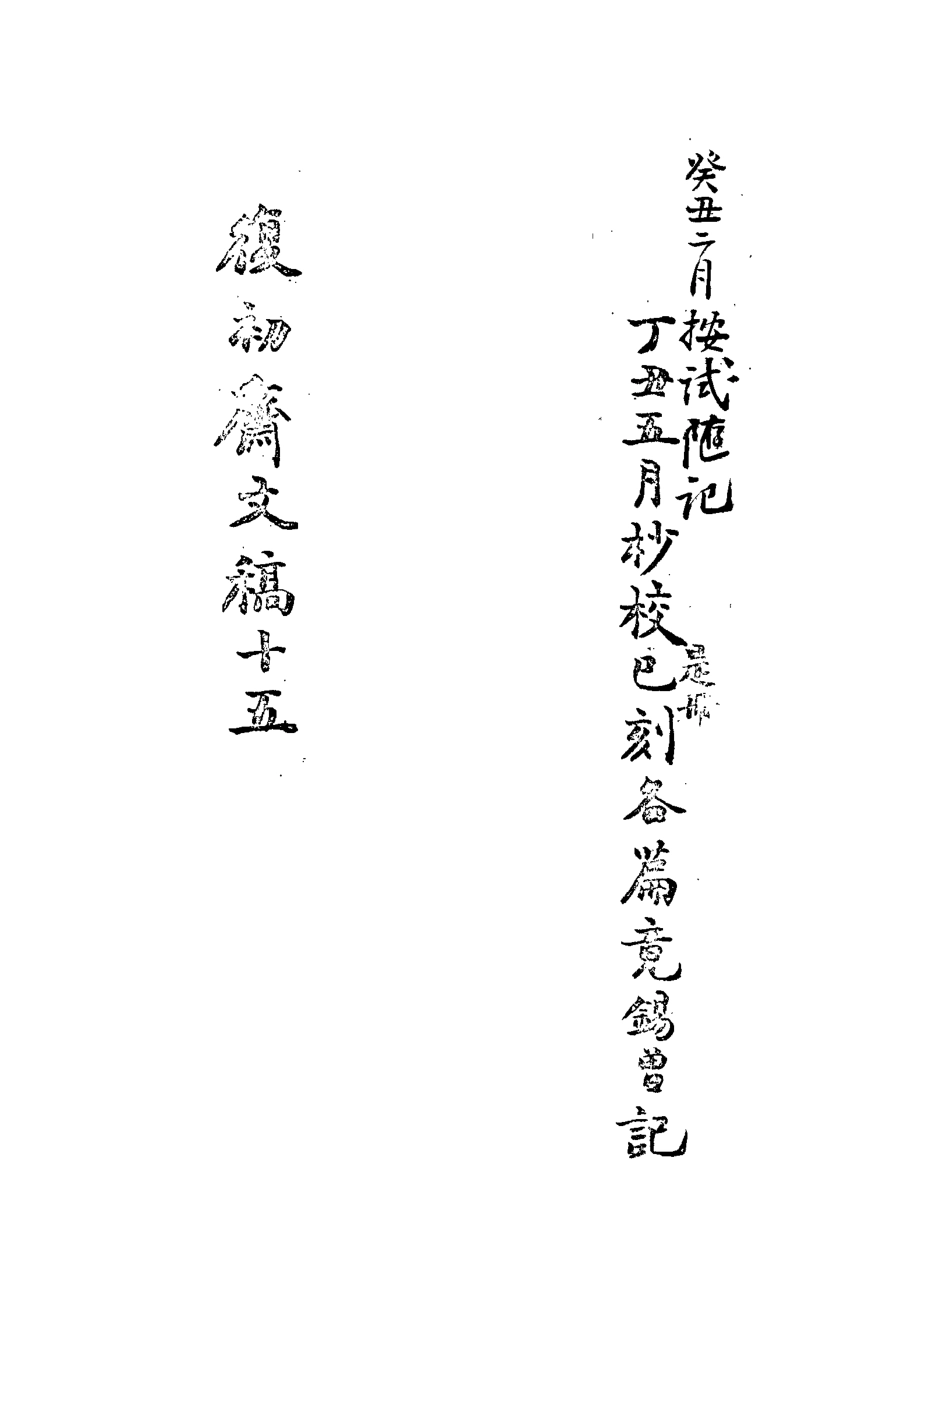 癸丑二月按試隨記
丁丑五月杪校已刻各篇竟錫曾記
是册
復初齋文稿十五